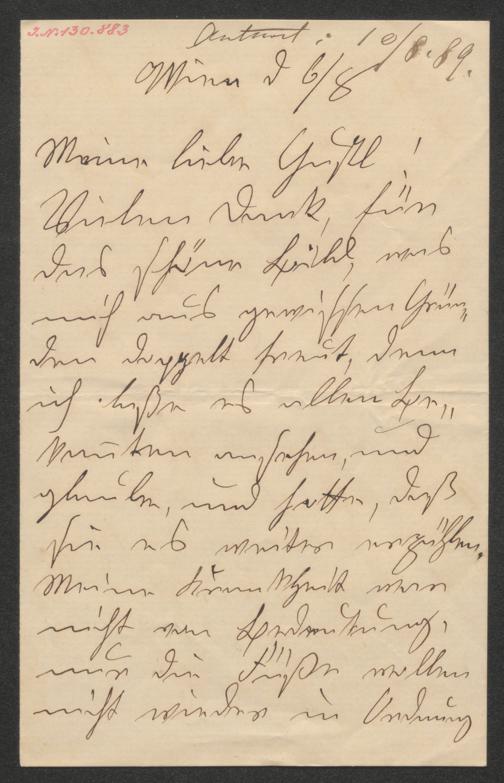 J.N. 130.883
Antwort: 10/8.89.
Wien d 6/8
Meine liebe Gustl!
Vielen Dank, für
das schöne Bild, was
mich aus gewissen Grün„
den doppelt freut, denn
ich laße es allen Be„
kannten ansehen, und
glaube, und hoffe, daß
sie es weiter erzählen.
Meine Krankheit war
nicht von Bedeutung,
nur die Füße wollen
nicht wieder in Ordnung